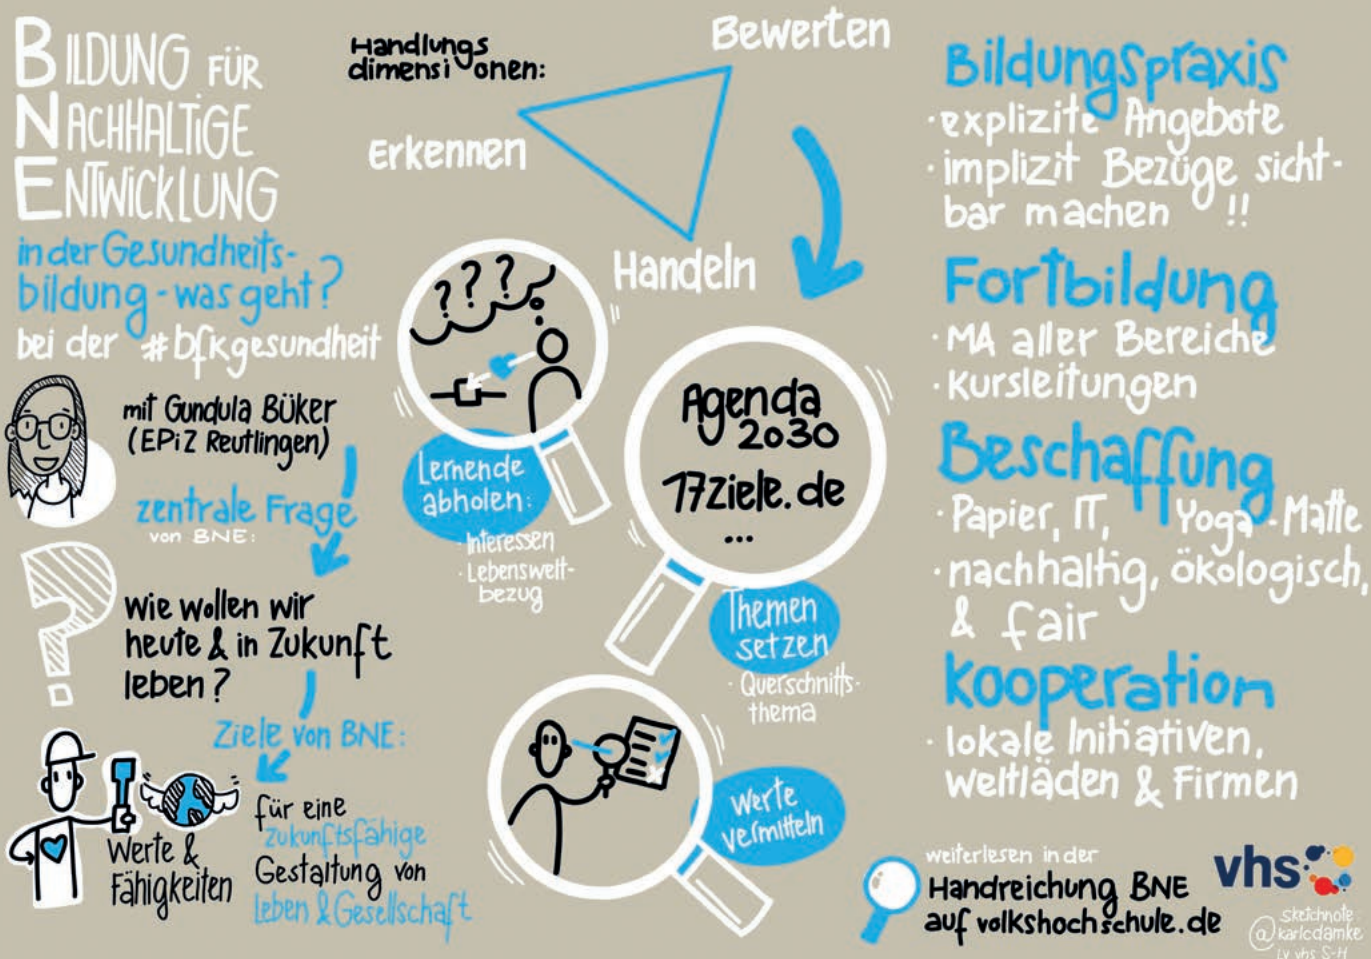 BILDUNG FÜR
NACHHALTIGE
ENTWICKLUNG
in der Gesundheits-
bildung - was geht?
bei der #bfkgesundheit
mit Gundula Büker
(EPiZ Reutlingen)
zentrale Frage
von BNE:
Wie wollen wir
heute & in Zukunft
leben?
Ziele von BNE:
Werte &
Fähigkeiten
für eine
zukunftsfähige
Gestaltung von
Leben & Gesellschaft
Handlungs
dimensionen:
Bewerten
Erkennen
Handeln
????
Lernende
abholen:
· Interessen
· Lebenswelt-
bezug
Agenda
2030
17Ziele.de
...
Themen
setzen
· Querschnitts-
thema
Werte
vermitteln
Bildungspraxis
· explizite Angebote
· implizit Bezüge sicht-
bar machen !!
Fortbildung
· MA aller Bereiche
· Kursleitungen
Beschaffung
· Papier, IT, Yoga-Matte
· nachhaltig, ökologisch,
& fair
Kooperation
· lokale Initiativen,
Weltläden & Firmen
weiterlesen in der
Handreichung BNE
auf volkshochschule.de
vhs
sketchnote:
@karlcdamke
LV vhs S-H